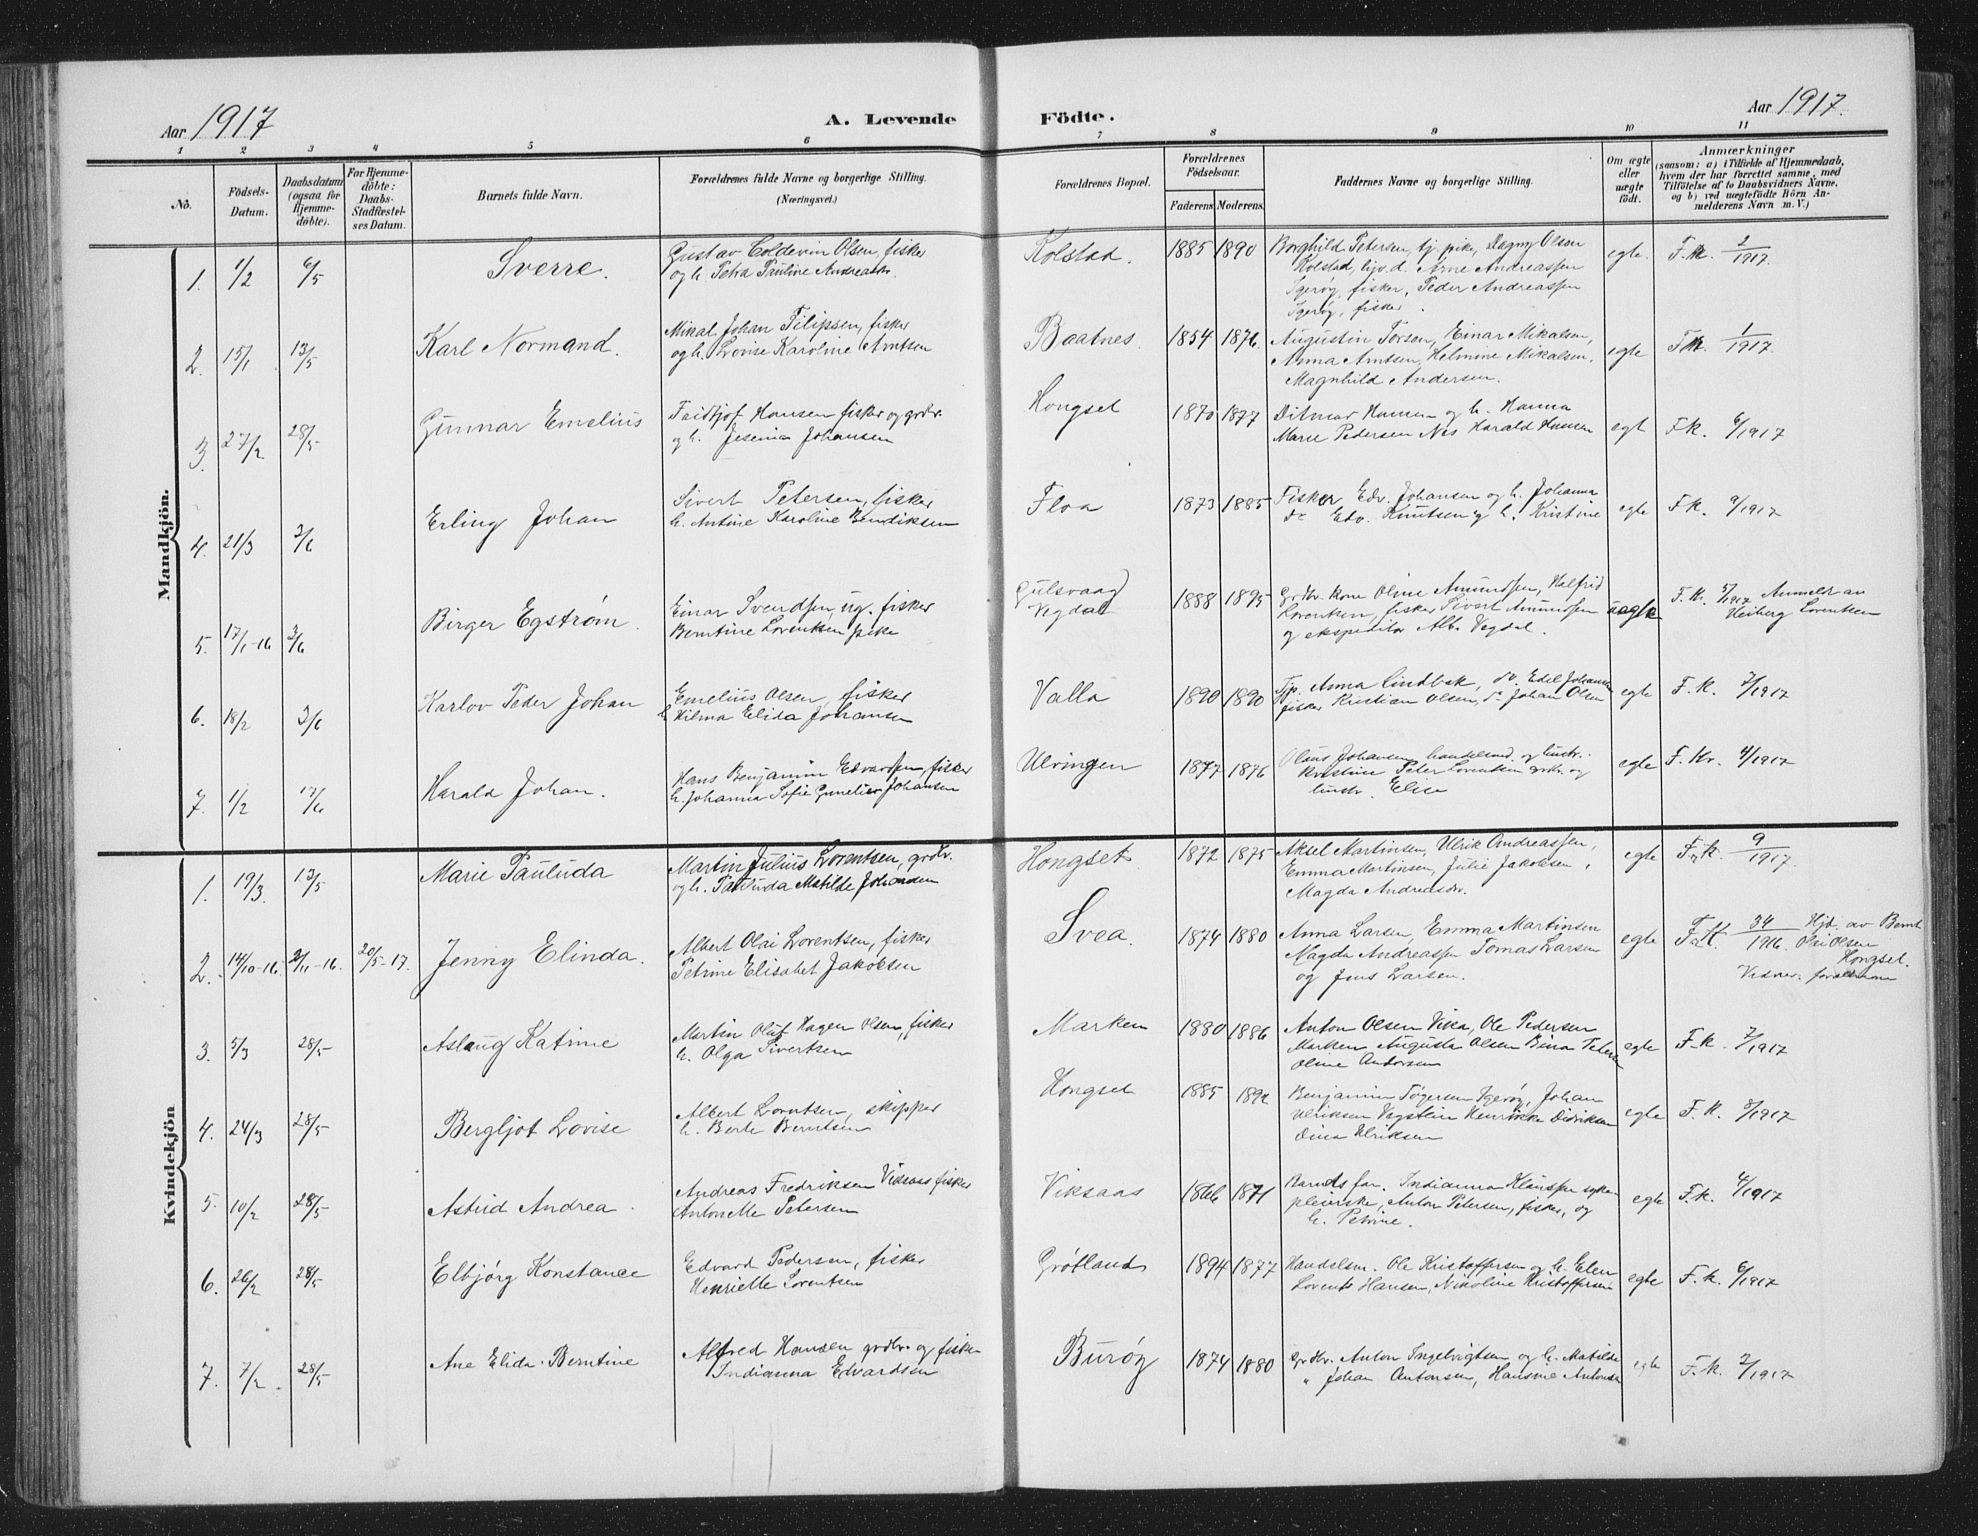 Aar 1917
A. Levende
Födte.
Aar 1917.
1 2 3 4 5 6 7 8 9 10 11
No.
Födsels-
Datum.
Daabsdatum
(ogsaa for
Hjemme-
döbte).
For Hjemme-
döbte:
Daabs-
Stadfæstel-
ses Datum.
Barnets fulde Navn.
Forældrenes fulde Navne og borgerlige Stilling.
(Næringsvei.)
Forældrenes Bopæl.
Forældrenes
Födselsaar.
Faderens. Moderens.
Faddernes Navne og borgerlige Stilling.
Om ægte
eller
uægte
födt.
Anmærkninger
(saasom: a) i Tilfælde af Hjemmedaab,
hvem der har forrettet samme, med
Tilföielse af to Daabsvidners Navne,
og b) ved uægtefödte Börn An-
melderens Navn m. V.)
Mandkjön.
1. 1/2 6/5 Sverre.
Gustav Coldevin Olsen, fisker
og h. Petra Pauline Andreasdr.
Kolstad. 1885 1890
Borghild Petersen, tj. pike, Dagny Olsen
Kolstad, ligv. d. Arne Andreassen
Igerøy, fisker, Peder Andreassen
Igerøy, fisker.
egte. F.k. 2/1917.
2. 15/1 13/5 Karl Normand.
Mikal Johan Filipsen, fisker
og h. Lovise Karoline Arntsen
Baatnes. 1854 1876.
Augustin Torsen, Einar Mikalsen,
Anna Arntsen, Helmine Mikalsen,
Magnhild Andersen.
egte F.k. 1/1917.
3. 27/2 28/5 Gunnar Emelius
Fridtjof Hansen fisker og grdbr.
og h. Jesenia Johansen
Hongset 1870 1877
Ditmar Hansen og h. Hanna
Marie Pedersen Nes Harald Hansen
egte F.k. 6/1917
4. 21/3 3/6 Erling Johan
Sivert Petersen, fisker
h. Antine Karoline Bendiksen
Floa 1873 1885
Fisker Edv. Johansen og h. Johanna
do Edv. Knutsen og h. Kristine
egte F.k. 9/1917
5. 17/1-16 3/6 Birger Egstrøm.
Einar Svendsen, ug. fisker
Berntine Lorentsen pike
Gulsvaag
Vegdal 1888 1895
Grdbr. kone Oline Amundsen, Halfrid
Lorentsen, fisker Sivert Amundsen
og ekspeditør Alb. Vegdal.
uegte F.k. 5/1917 Anmeldr av
Heiberg Lorentsen
6. 18/2 3/6 Karlov Peder Johan
Emelius Olsen, fisker
h. Hilma Elida Johansen
Valla 1890 1890
Tjp. Anna Lindbak, do. Edel Johansen
fisker Kristian Olsen, do Johan Olsen
egte F.k. 7/1917
7. 1/2 17/6 Harald Johan.
Hans Benjamin Edvardsen, fisker
h. Johanna Sofie Johansen
Ulvingen 1877 1876
Olaus Johansen, handelsmd. og hustr.
Kristine Peter Lorentsen grdbr. og
hustr. Elise
egte F.kr. 4/1917
Kvindekjön
1. 19/3. 13/5 Marie Pauluda
Martin Julius Lorentsen, grdbr.
og h. Pauluda Matilde Johansen
Hongset 1872 1875
Aksel Martinsen, Ulrik Andreassen,
Emma Martinsen, Julie Jakobsen,
Magda Andreasdr.
egte F.k. 9/1917.
2. 14/10-16. 2/11-16. 20/5-17. Jenny Elinda.
Albert Olai Lorentsen, fisker
Petrine Elisabet Jakobsen
Svea. 1874 1880
Anna Larsen, Emma Martinsen
Magda Andreassen Tomas Larsen
og Jens Larsen.
egte F.k. 34/1916. Hjd. av Bernt
Oluf Olsen
Hongset.
Vidner: forældrene
3. 5/3 28/5 Aslaug Katrine
Martin Oluf Hagen Olsen, fisker
h. Olga Sivertsen
Marken 1880 1886
Anton Olsen Vika, Ole Pedersen
Marken Augusta Olsen Bina Petersen
Oline Andersen
egte F.k. 7/1917
4. 24/3 28/5 Bergljot Lovise
Albert Lorntsen, skipper
h. Berte Berntsen
Hongset 1885 1892
Benjamin Tøgersen Igerøy, Johan
Ulriksen Vegstein Henrikke Didriksen
Dina Ulriksen
egte F.k. 8/1917
5. 10/2 28/5 Astrid Andrea.
Andreas Fredriksen Viksaas fisker
Antonette Petersen
Viksaas 1866 1871
Barnets far. Indianna Klaussen syke-
pleierske, Anton Petersen, fisker, og
h. Petrine.
egte F.k. 4/1917
6. 26/2 28/5 Elbjørg Konstance
Edvard Pedersen, fisker
Henriette Lorentsen
Grøtland 1894 1877
Handelsm. Ole Kristoffersen og h. Elen
Lorents Hansen, Nikoline Kristoffersen
egte F.k. 6/1917
7. 7/2 28/5 Ane Elida Berntine
Alfred Hansen grdbr. og fisker
Indianna Edvardsen
Burøy 1874 1880
Grdbr. Anton Ingebrigtsen og h. Matilde
" Johan Antonsen, Hansine Antonsen
egte F.k. 2/1917